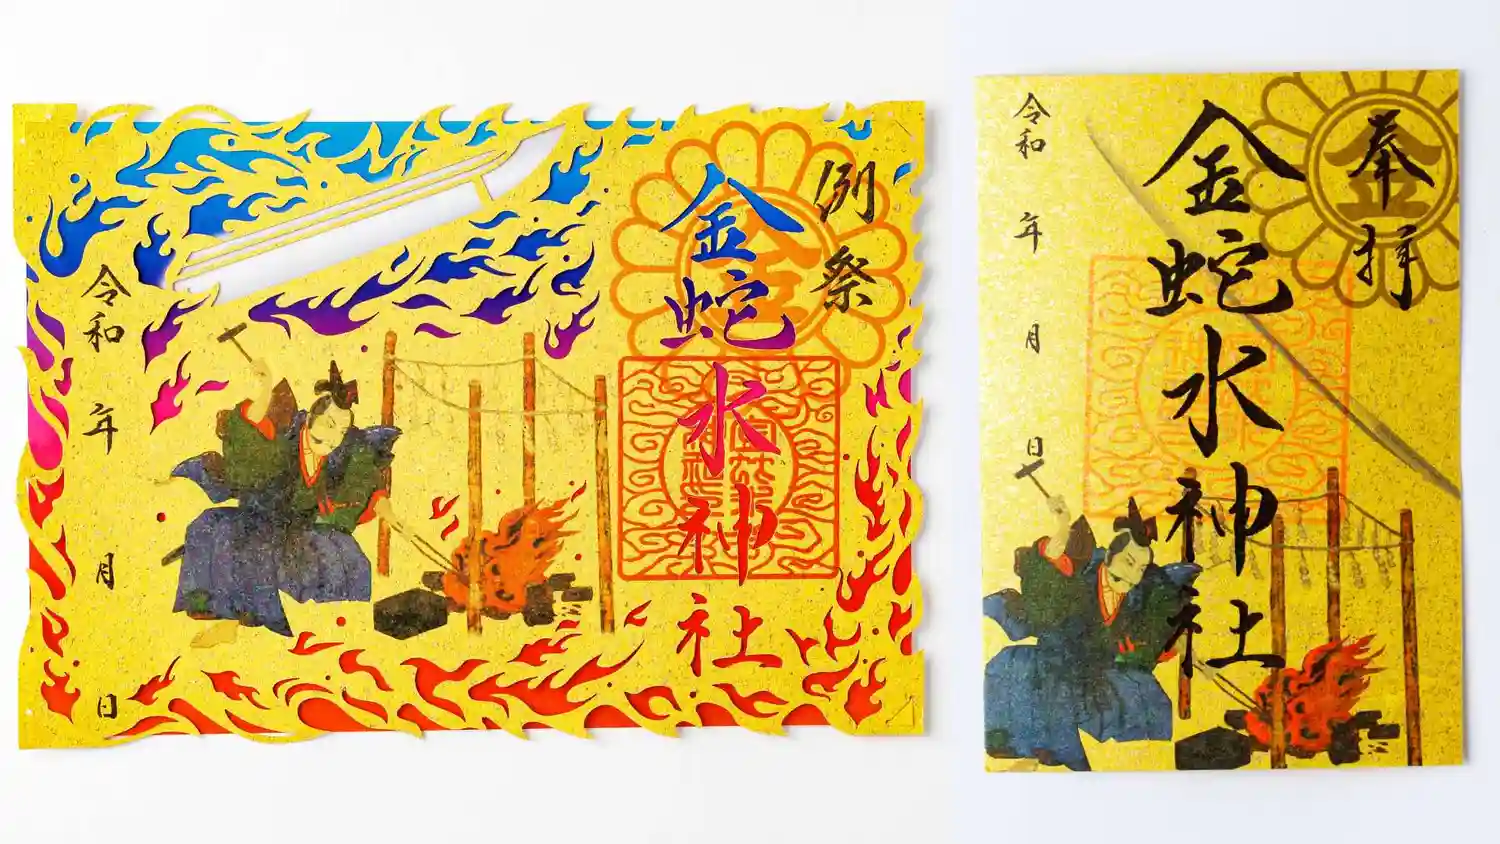 例祭
金蛇水神社
令和 年 月 日
奉拝
金
金蛇水神社
令和 年 月 日